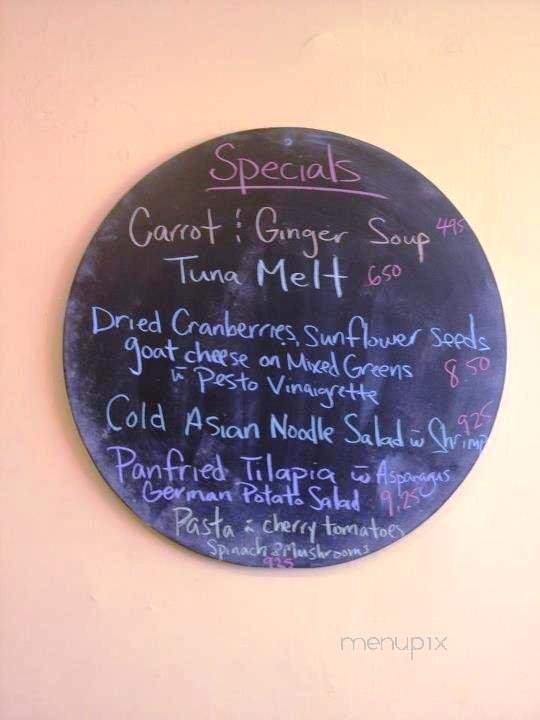 Specials
Carrot & Ginger Soup 495
Tuna Melt 650
Dried Cranberries, Sunflower seeds
goat cheese on Mixed Greens 8.50
w̄ Pesto Vinaigrette
Cold Asian Noodle Salad w̄ Shrimp 925
Panfried Tilapia w̄ Asparagus
German Potato Salad 9.25
Pasta w̄ cherry tomatoes
Spinach & Mushrooms
925
menupix